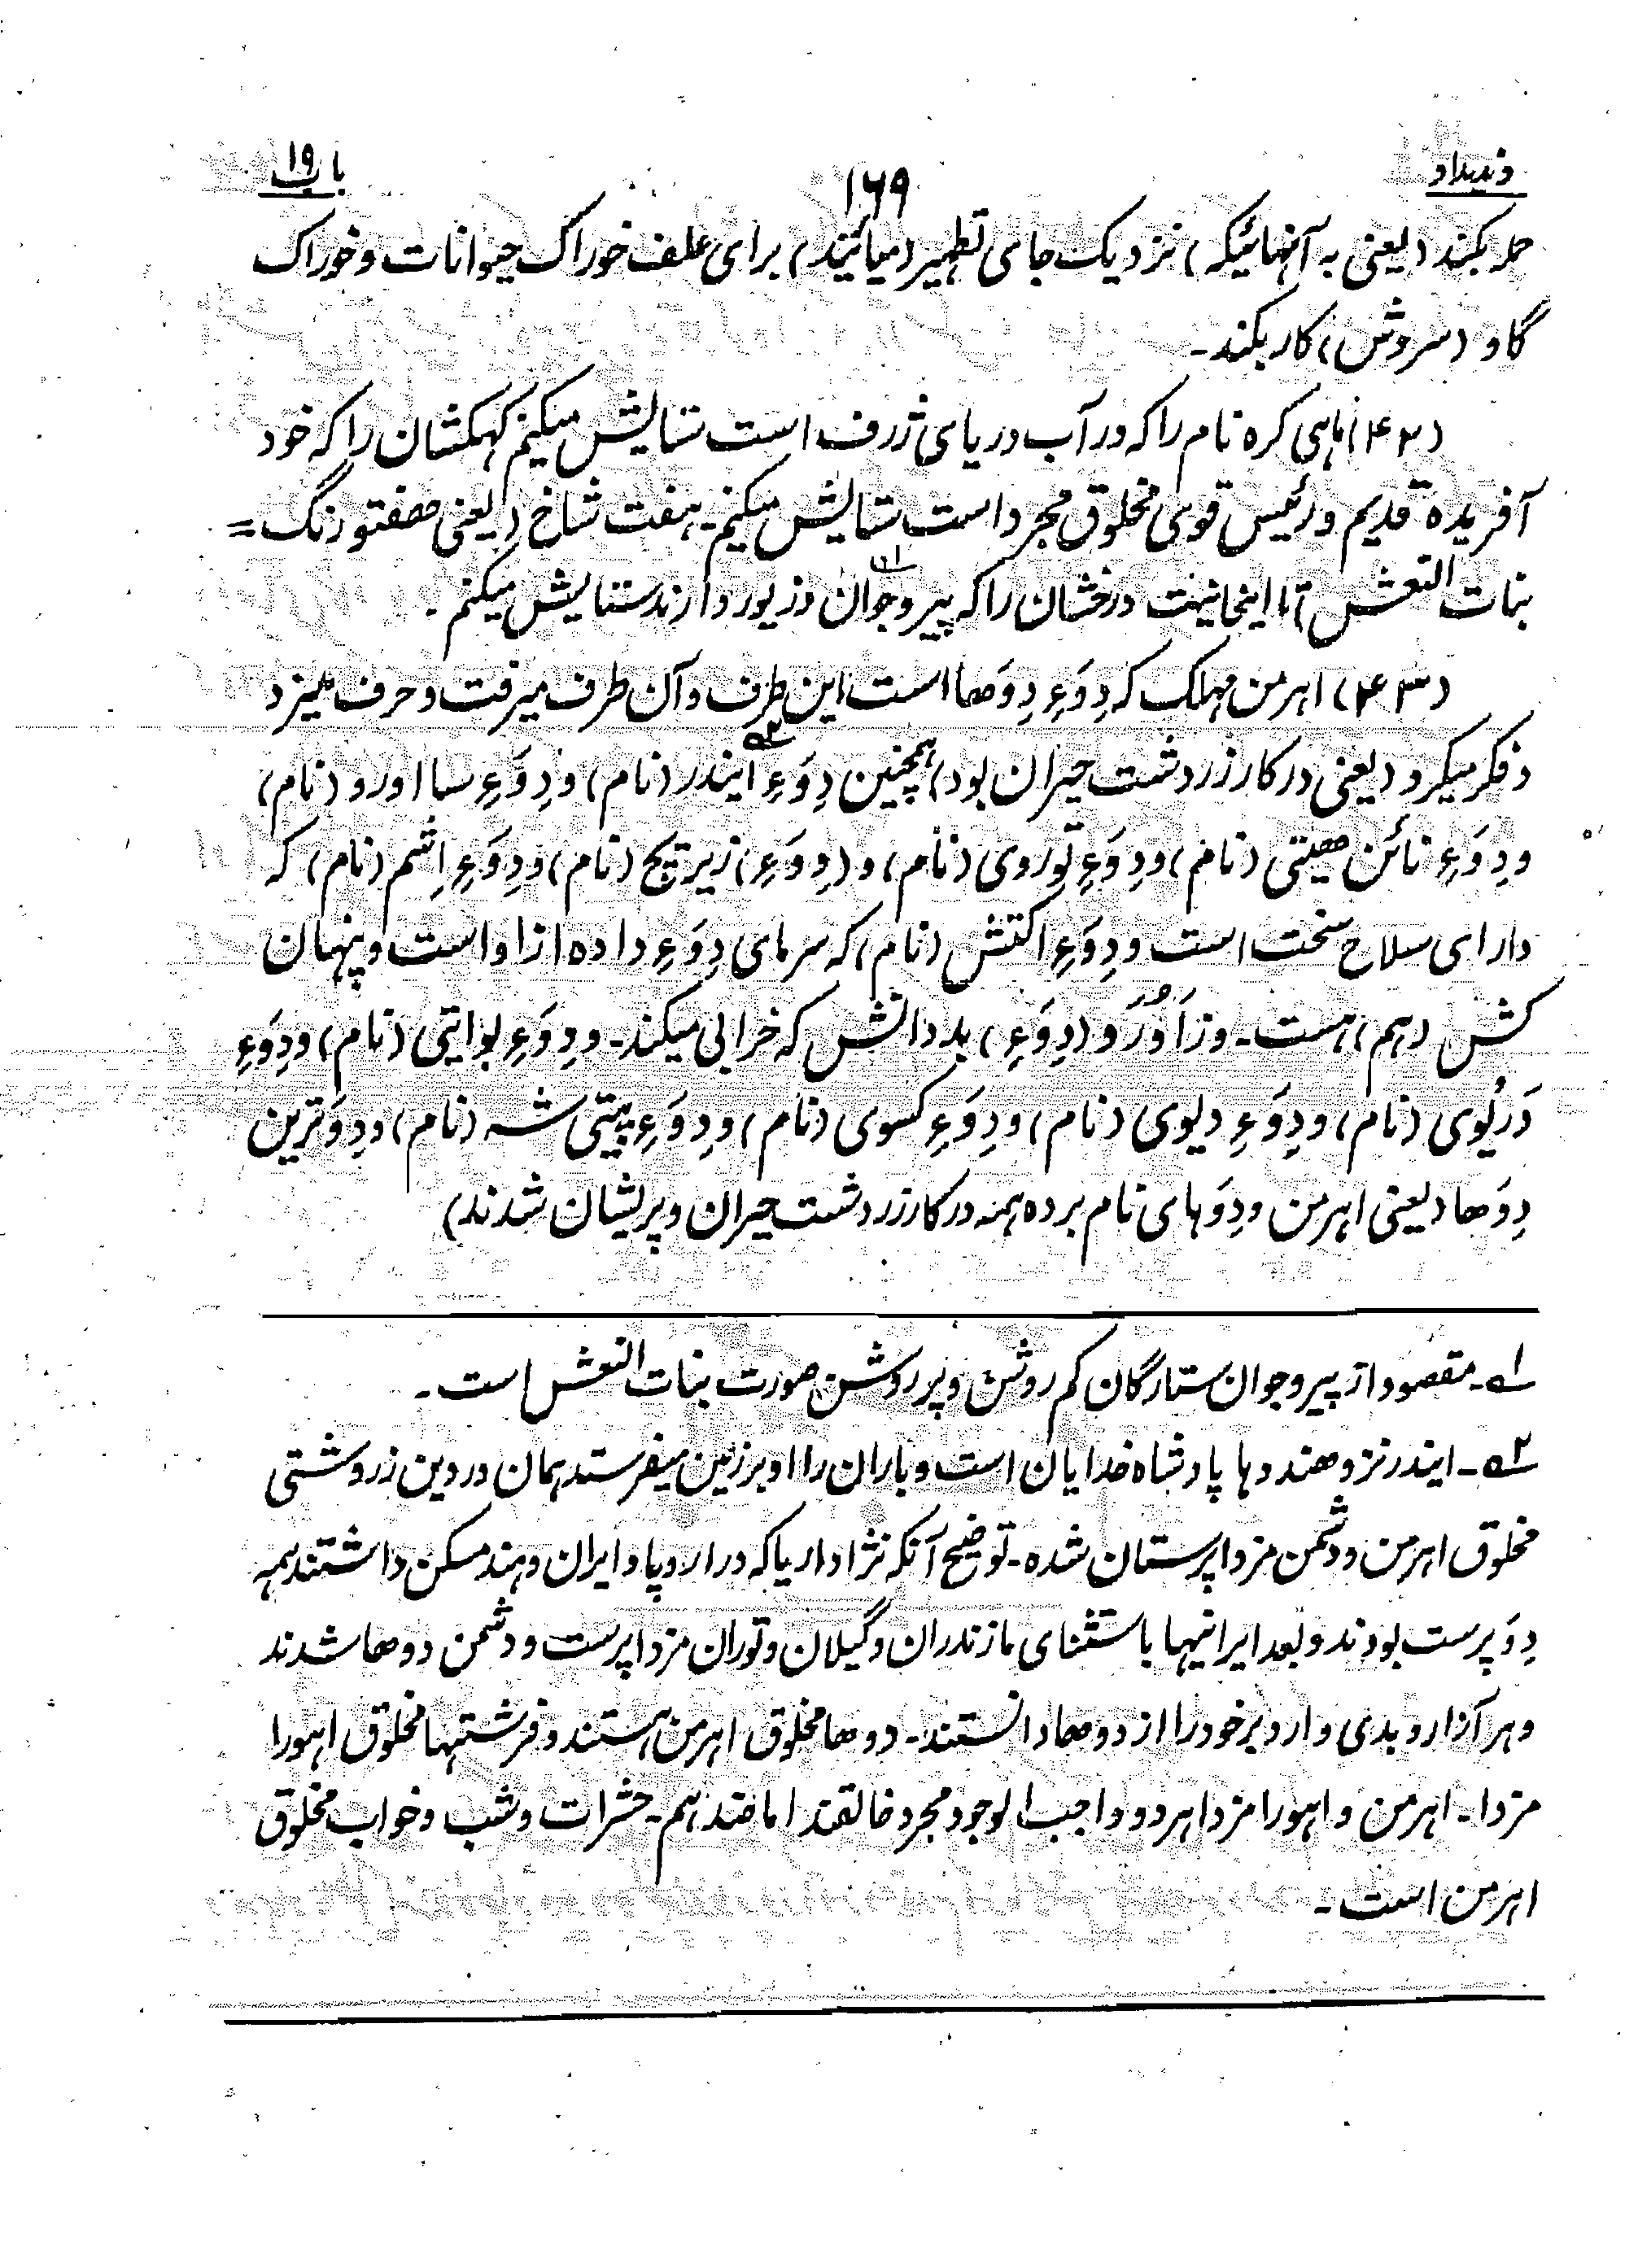 وندیداد ۱۶۹ باب ۱۹
حمله بکند (یعنی به آنهائیکه) نزدیک جای تطهیر (میآیند) برای علف خوراک حیوانات و خوراک
گاو (سروش) کار بکند۔
(۴۲) ماهی کره نام را که در آب دریای ژرف است ستایش میکنم کهکشان را که خود
آفریده قدیم و رئیس قوی مخلوق مجرد است ستایش میکنم۔ هفت شاخ (یعنی هفتورنگ =
بنات النعش) تا اینجانیهت درخشان را که پیر و جوان ۱ در زیور دارند ستایش میکنم۔
(۴۳) اهرمن مهلک که دِوَءِ دِوَها است این طرف و آن طرف میرفت و حرف میزد
و فکر میکرد (یعنی در کار زردشت حیران بود) همچنین دِوَءِ ایندر ۲ (نام) و دِوَءِ سااورو (نام)
و دِوَءِ نائن هیتی (نام) و دِوَءِ تَوروی (نام) و (دِوَءِ) زیریچ (نام) و دِوَءِ اِشم (نام) که
دارای سلاح سخت است و دِوَءِ اکتش (نام) که سرمای دِوَءِ داده از او است و پنهان
کش (هم) هست۔ و زَاوُرَو (دِوَءِ) بد دانش که خرابی میکند۔ و دِوَءِ بوایتی (نام) و دِوَءِ
دَرِئوی (نام) و دِوَءِ دیوی (نام) و دِوَءِ کسوی (نام) و دِوَءِ پیتی شه (نام) و دِوَترین
دِوَها (یعنی اهرمن و دِوَهای نام برده همه در کار زردشت حیران و پریشان شدند)
۱ـ مقصود از پیر و جوان ستارگان کم روشن و پر روشن صورت بنات النعش است۔
۲ـ ایندر نزد هندوها پادشاه خدایان است و باران را او بر زمین میفرستد همان در دین زردشتی
مخلوق اهرمن و دشمن مزداپرستان شده۔ توضیح آنکه نژاد اریا که در اروپا و ایران و هند مسکن داشتند همه
دِوَ پرست بودند و بعد ایرانیها باستثنای مازندران و گیلان و توران مزداپرست و دشمن دوها شدند
و هر آزار و بدی وارد بر خود را از دوها دانستند۔ دوها مخلوق اهرمن هستند و فرشتها مخلوق اهورا
مزدا۔ اهرمن و اهورا مزدا هر دو واجب الوجود مجرد خالقند اما ضد هم۔ حشرات و شب و خواب مخلوق
اهرمن است۔